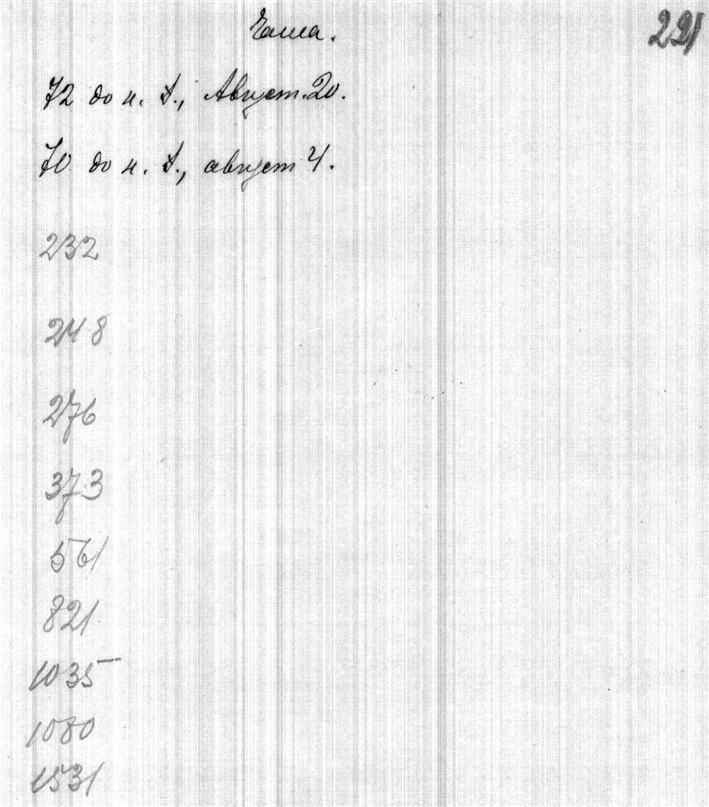 Чаша. 221
72 до н. э., Август 20.
70 до н. э., август 4.
232
248
276
373
561
821
1035
1080
1531